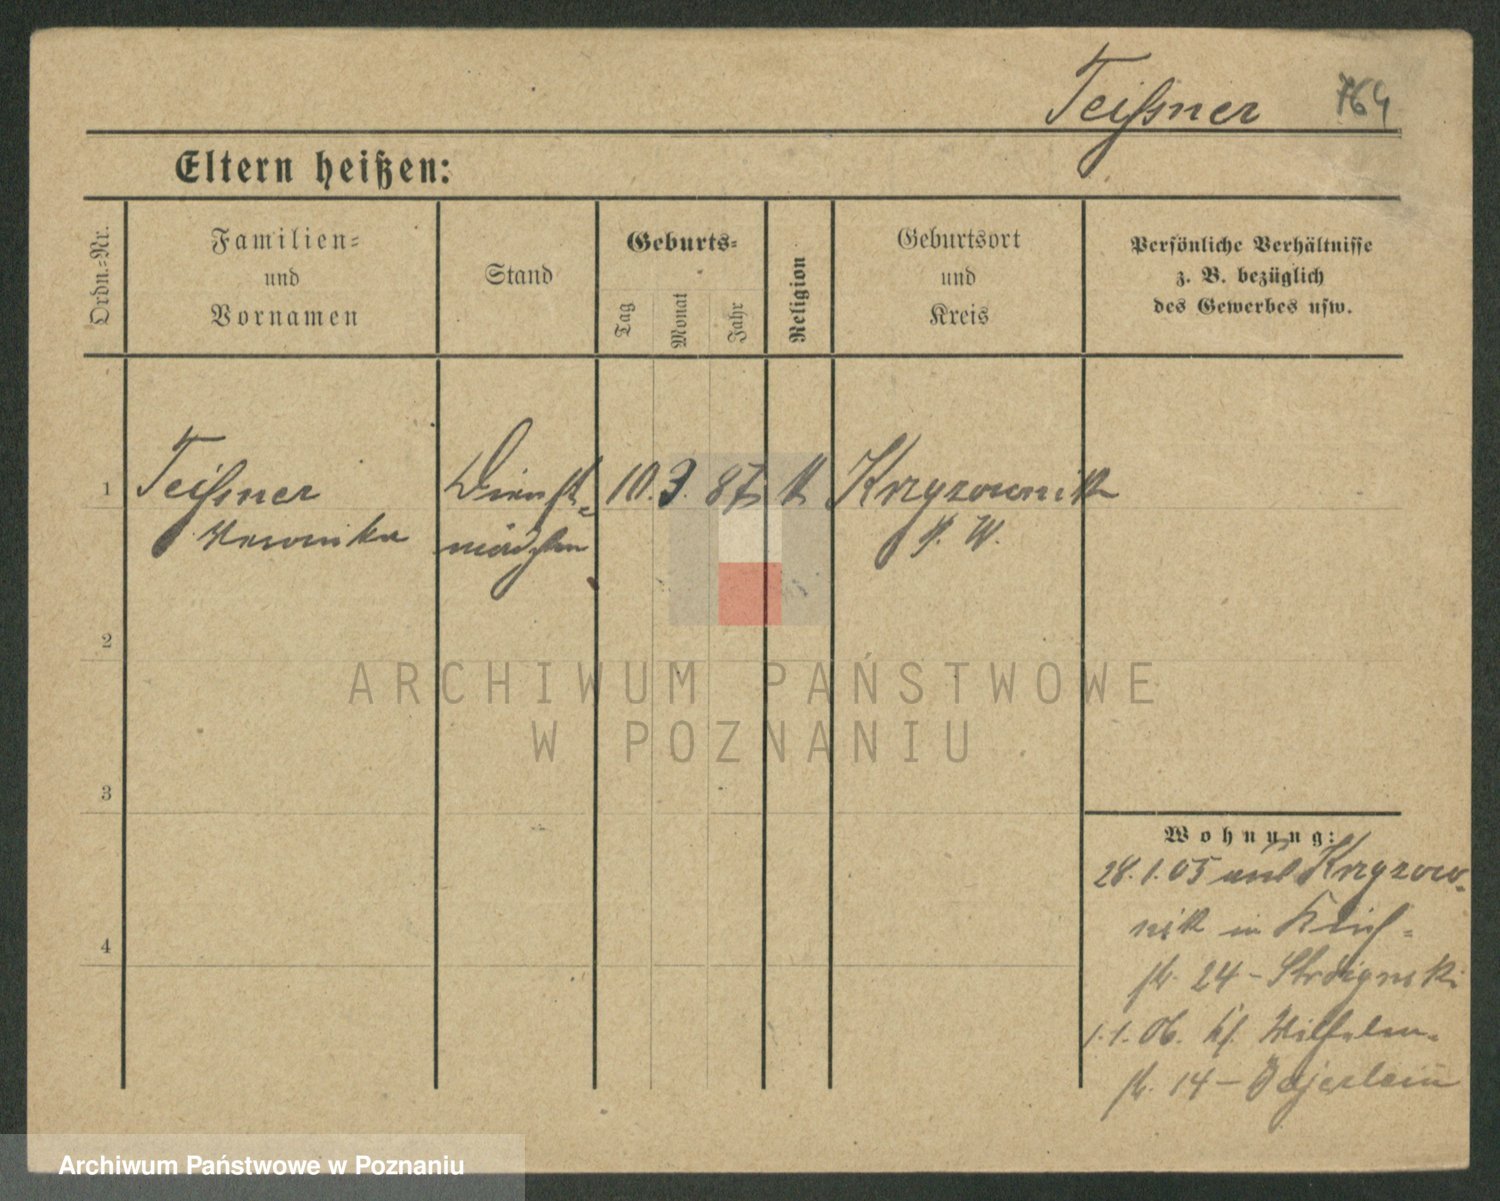 Teißner 764
Eltern heißen:
Ordn.-Nr.
Familien-
und
Vornamen
Stand
Geburts-
Tag
Monat
Jahr
Religion
Geburtsort
und
Kreis
Persönliche Verhältnisse
z. B. bezüglich
des Gewerbes usw.
1 Teißner Dienst- 10. 3. 87 k Krzyzownik
Veronika mädchen P. W.
2
3
4
Wohnung:
28.1.05 aus Krzyzow-
nik in
str. 24 -
1.1.06. Wilhelm-
str. 14 -
ARCHIWUM PAŃSTWOWE
W POZNANIU
Archiwum Państwowe w Poznaniu